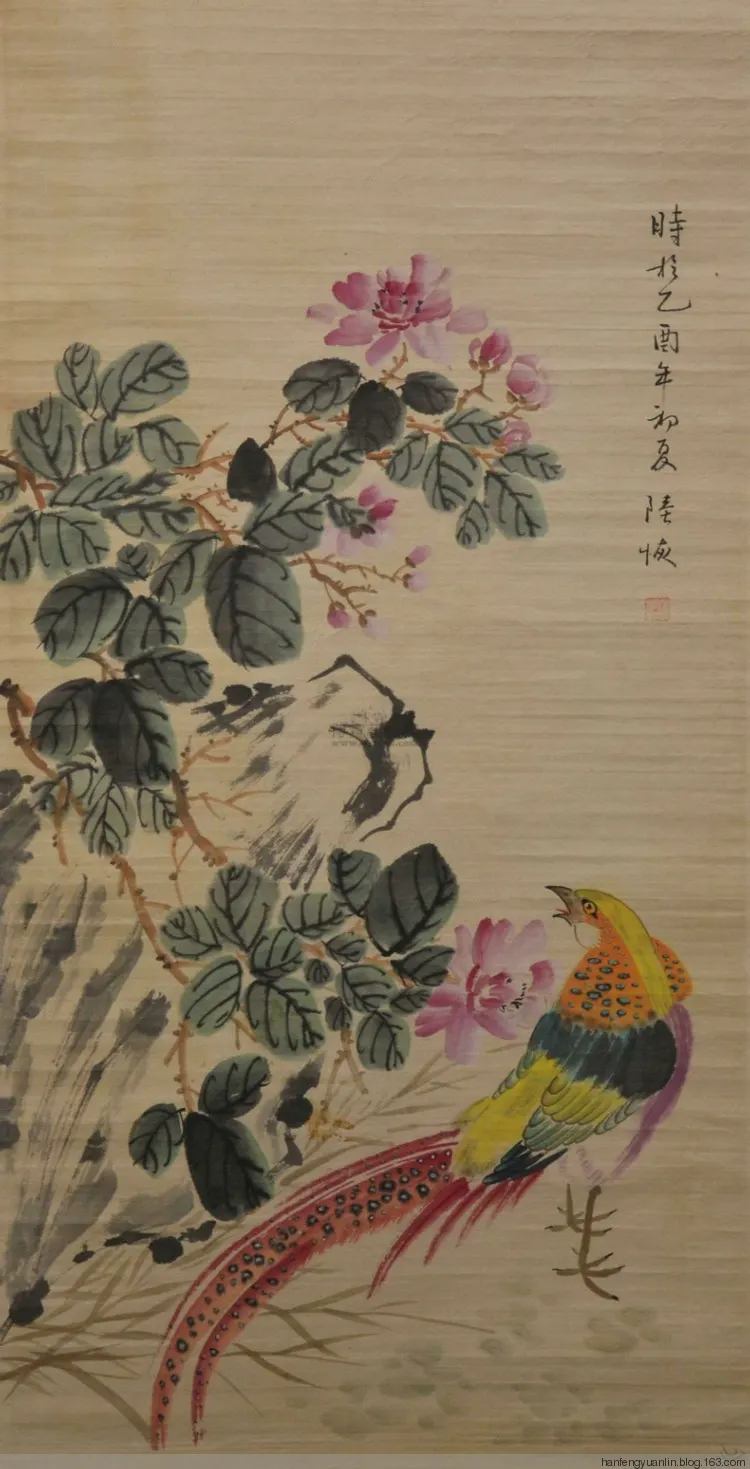 時於乙酉年初夏
陸恢
hanfengyuanlin.blog.163.com